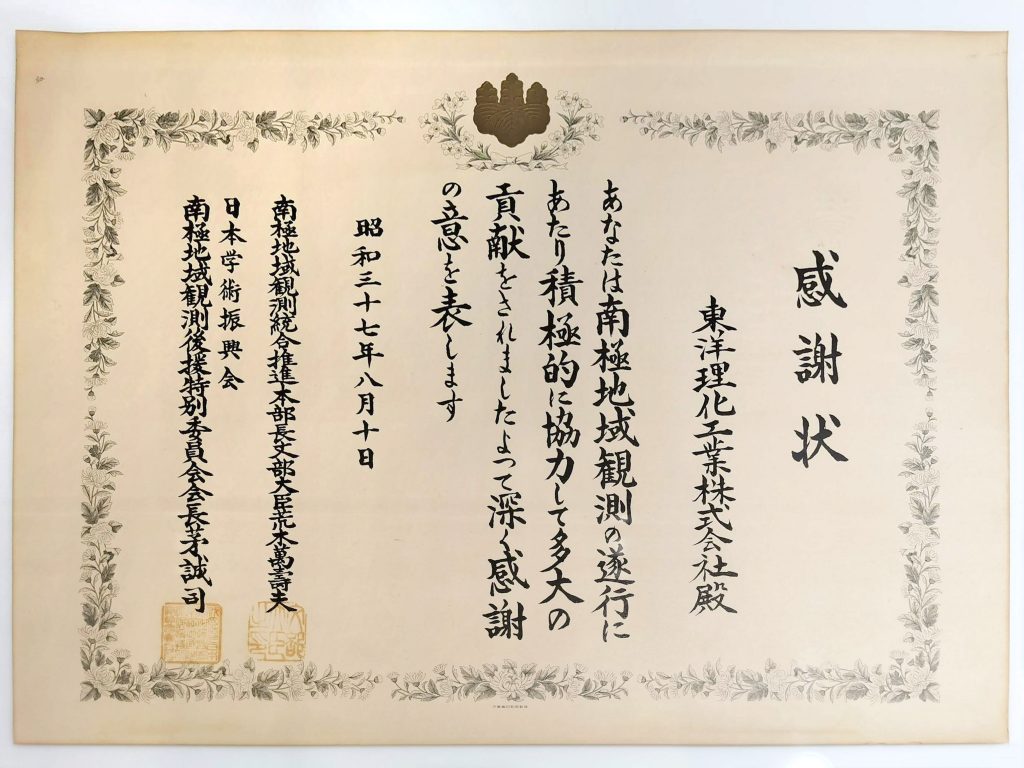 感謝状
東洋理化工業株式会社殿
あなたは南極地域観測の遂行に
あたり積極的に協力して多大の
貢献をされましたよって深く感謝
の意を表します
昭和三十七年八月十日
南極地域観測統合推進本部長文部大臣荒木萬壽夫
日本学術振興会
南極地域観測後援特別委員会会長茅誠司